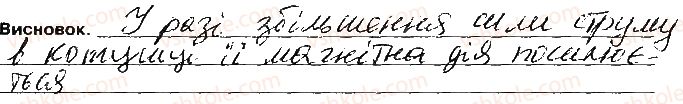 Висновок. У разі збільшення сили струму
в котушці її магнітна дія посилює-
ться